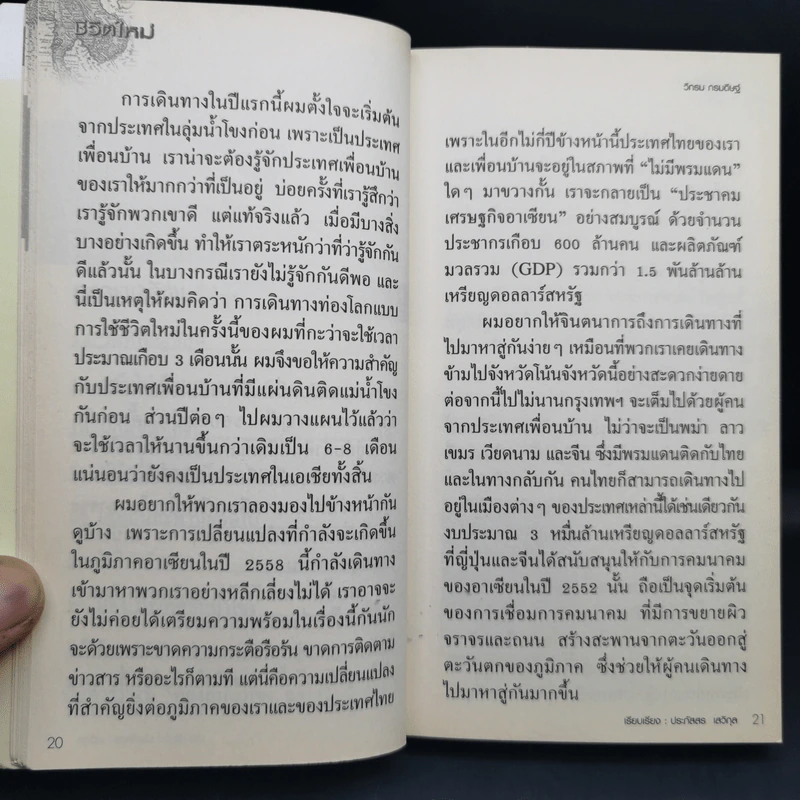 ชีวิตใหม่
การเดินทางในปีแรกนี้ผมตั้งใจจะเริ่มต้น
จากประเทศในลุ่มน้ำโขงก่อน เพราะเป็นประเทศ
เพื่อนบ้าน เราน่าจะต้องรู้จักประเทศเพื่อนบ้าน
ของเราให้มากกว่าที่เป็นอยู่ บ่อยครั้งที่เรารู้สึกว่า
เรารู้จักพวกเขาดี แต่แท้จริงแล้ว เมื่อมีบางสิ่ง
บางอย่างเกิดขึ้น ทำให้เราตระหนักว่าที่ว่ารู้จักกัน
ดีแล้วนั้น ในบางกรณีเรายังไม่รู้จักกันดีพอ และ
นี่เป็นเหตุให้ผมคิดว่า การเดินทางท่องโลกแบบ
การใช้ชีวิตใหม่ในครั้งนี้ของผมที่กะว่าจะใช้เวลา
ประมาณเกือบ 3 เดือนนั้น ผมจึงขอให้ความสำคัญ
กับประเทศเพื่อนบ้านที่มีแผ่นดินติดแม่น้ำโขง
กันก่อน ส่วนปีต่อๆ ไปผมวางแผนไว้แล้วว่า
จะใช้เวลาให้นานขึ้นกว่าเดิมเป็น 6-8 เดือน
แน่นอนว่ายังคงเป็นประเทศในเอเชียทั้งสิ้น
ผมอยากให้พวกเราลองมองไปข้างหน้ากัน
ดูบ้าง เพราะการเปลี่ยนแปลงที่กำลังจะเกิดขึ้น
ในภูมิภาคอาเซียนในปี 2558 นี้กำลังเดินทาง
เข้ามาหาพวกเราอย่างหลีกเลี่ยงไม่ได้ เราอาจจะ
ยังไม่ค่อยได้เตรียมความพร้อมในเรื่องนี้กันนัก
จะด้วยเพราะขาดความกระตือรือร้น ขาดการติดตาม
ข่าวสาร หรืออะไรก็ตามที แต่นี่คือความเปลี่ยนแปลง
ที่สำคัญยิ่งต่อภูมิภาคของเราและของประเทศไทย
20
วิกรม กรมดิษฐ์
เพราะในอีกไม่กี่ปีข้างหน้านี้ประเทศไทยของเรา
และเพื่อนบ้านจะอยู่ในสภาพที่ “ไม่มีพรมแดน”
ใดๆ มาขวางกั้น เราจะกลายเป็น “ประชาคม
เศรษฐกิจอาเซียน” อย่างสมบูรณ์ ด้วยจำนวน
ประชากรเกือบ 600 ล้านคน และผลิตภัณฑ์
มวลรวม (GDP) รวมกว่า 1.5 พันล้านล้าน
เหรียญดอลลาร์สหรัฐ
ผมอยากให้จินตนาการถึงการเดินทางที่
ไปมาหาสู่กันง่ายๆ เหมือนที่พวกเราเคยเดินทาง
ข้ามไปจังหวัดโน้นจังหวัดนี้อย่างสะดวกง่ายดาย
ต่อจากนี้ไปไม่นานกรุงเทพฯ จะเต็มไปด้วยผู้คน
จากประเทศเพื่อนบ้าน ไม่ว่าจะเป็นพม่า ลาว
เขมร เวียดนาม และจีน ซึ่งมีพรมแดนติดกับไทย
และในทางกลับกัน คนไทยก็สามารถเดินทางไป
อยู่ในเมืองต่างๆ ของประเทศเหล่านี้ได้เช่นเดียวกัน
งบประมาณ 3 หมื่นล้านเหรียญดอลลาร์สหรัฐ
ที่ญี่ปุ่นและจีนได้สนับสนุนให้กับการคมนาคม
ของอาเซียนในปี 2552 นั้น ถือเป็นจุดเริ่มต้น
ของการเชื่อมการคมนาคม ที่มีการขยายผิว
จราจรและถนน สร้างสะพานจากตะวันออกสู่
ตะวันตกของภูมิภาค ซึ่งช่วยให้ผู้คนเดินทาง
ไปมาหาสู่กันมากขึ้น
เรียบเรียง : ประภัสสร เสวิกุล 21